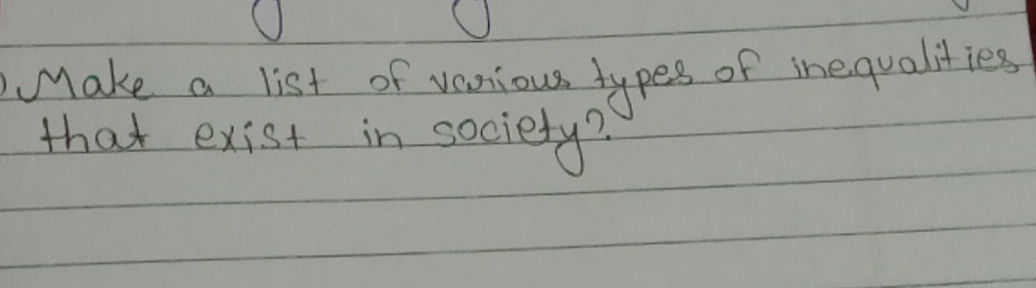 Make a list of various types of inequalities
that exist in society?